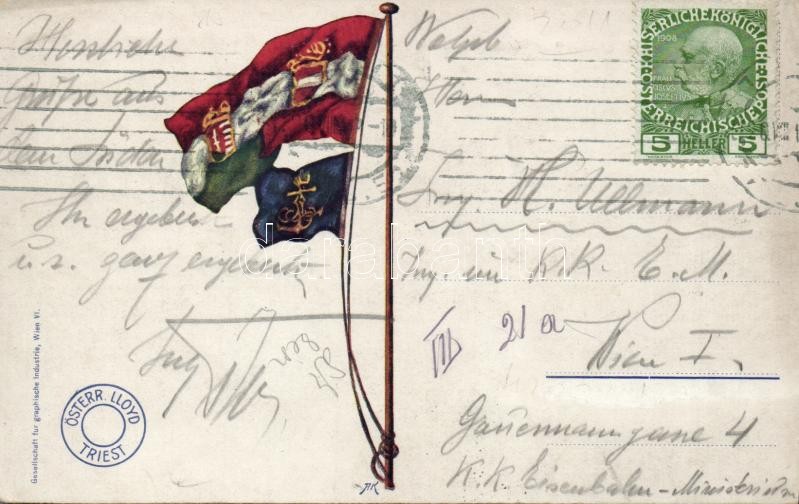 Herzliche
Grüße aus
dem Süden
Ihr ergebenst
u. s. ganz ergebenst
Wolgb.
Herrn
Ing. H. Ullmann
Ing. im K.K. E. M.
III 21a
Wien I.
Gauermanngasse 4
K.K. Eisenbahn-Ministerium
1908
KAISERLICHE KÖNIGLICHE
ÖSTERREICHISCHE POST
5 HELLER 5
ÖSTERR. LLOYD
TRIEST
Gesellschaft für graphische Industrie, Wien VI.
darabanth